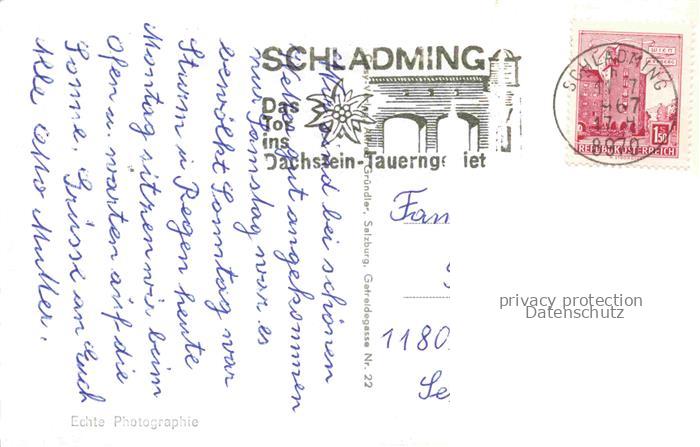 SCHLADMING
Das
Tor
ins
Dachstein-Tauerngebiet
SCHLADMING
1967
8970
WIEN
1.50
REPUBLIK ÖSTERREICH
sind bei schönen
Wetter gut angekommen
nur Samstag war es
bewölkt Sonntag war
Sturm u Regen heute
Montag sitzen wir beim
Ofen u. warten auf die
Sonne. Grüsse an Euch
Alle Otto Mutter.
Gründler, Salzburg, Getreidegasse Nr. 22
Fam
1180
privacy protection
Datenschutz
Echte Photographie